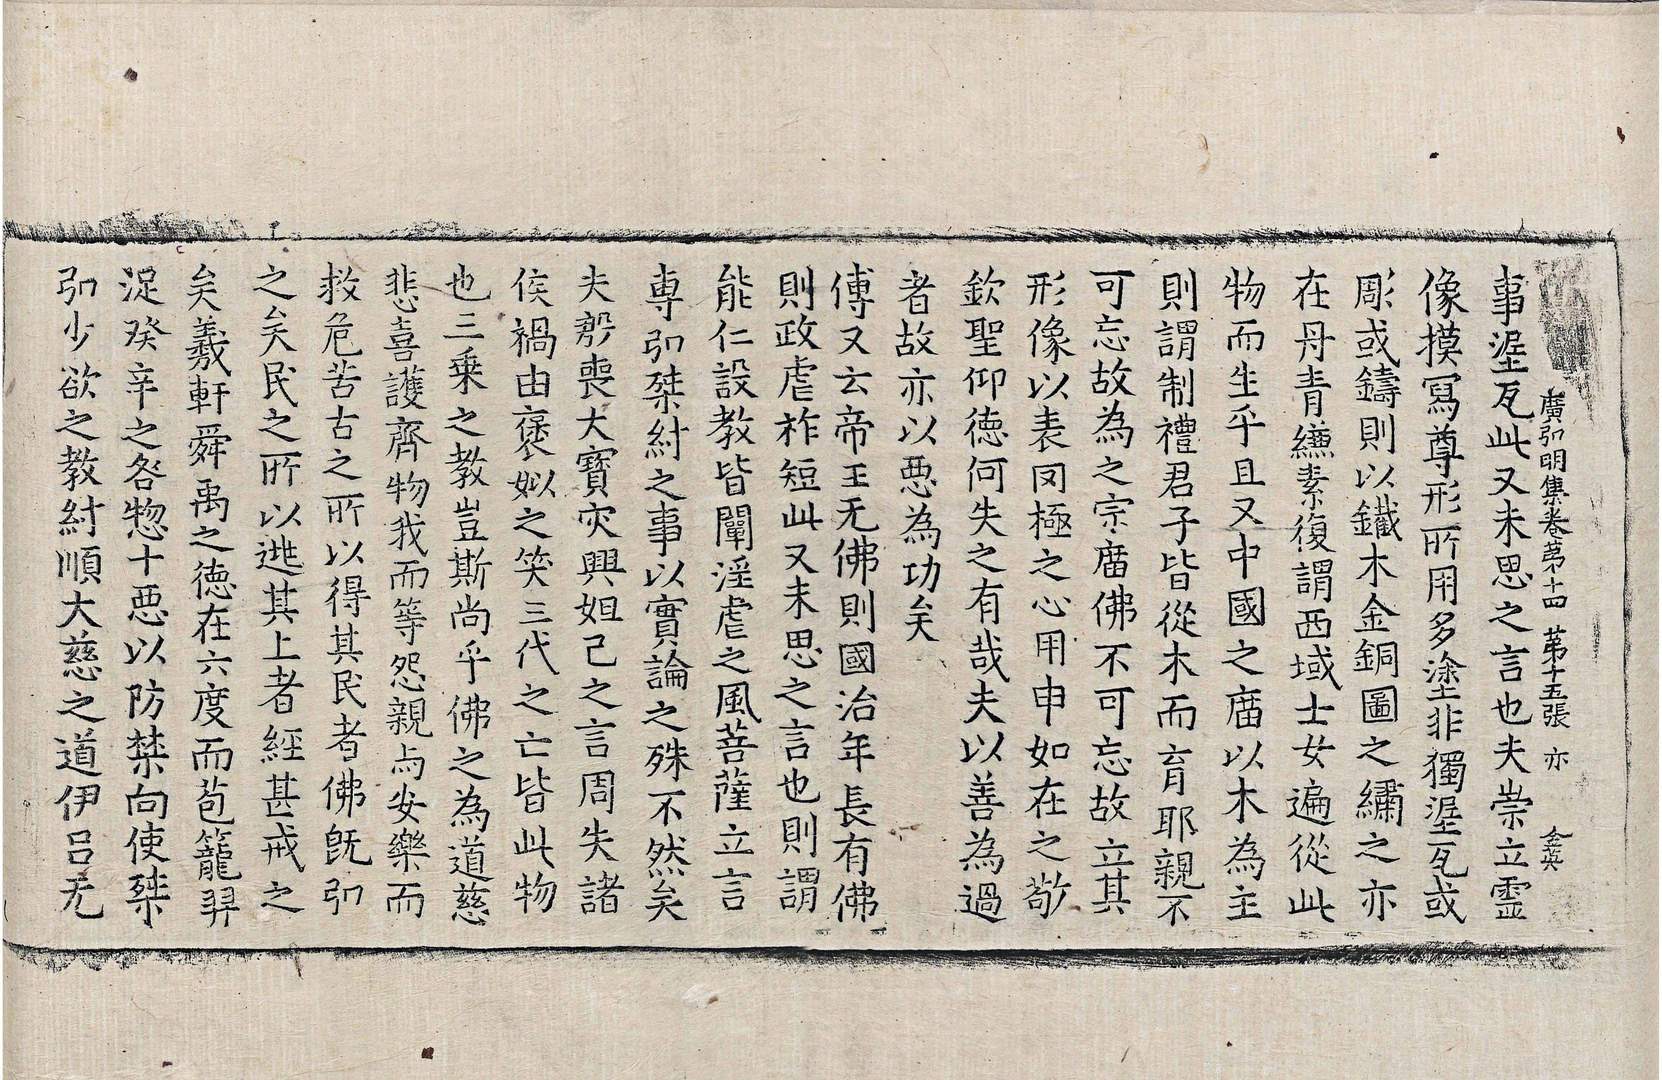 廣弘明集卷第十四 第十五張 亦 金英
事渥瓦此又未思之言也夫崇立靈
像摸寫尊形所用多塗非獨渥瓦或
彫或鑄則以鐵木金銅圖之繡之亦
在丹青縑素復謂西域士女遍從此
物而生乎且又中國之庿以木為主
則謂制禮君子皆從木而育耶親不
可忘故為之宗庿佛不可忘故立其
形像以表罔極之心用申如在之敬
欽聖仰德何失之有哉夫以善為過
者故亦以惡為功矣
傅又云帝王无佛則國治年長有佛
則政虐祚短此又未思之言也則謂
能仁設教皆闡淫虐之風菩薩立言
専弘桀紂之事以實論之殊不然矣
夫殷喪大寶灾興妲己之言周失諸
侯禍由褒姒之笑三代之亡皆此物
也三乗之教豈斯尚乎佛之為道慈
悲喜護齊物我而等怨親与安樂而
救危苦古之所以得其民者佛既弘
之矣民之所以逃其上者經甚戒之
矣羲軒舜禹之德在六度而苞籠羿
浞癸辛之咎惣十惡以防禁向使桀
弘少欲之教紂順大慈之道伊呂无